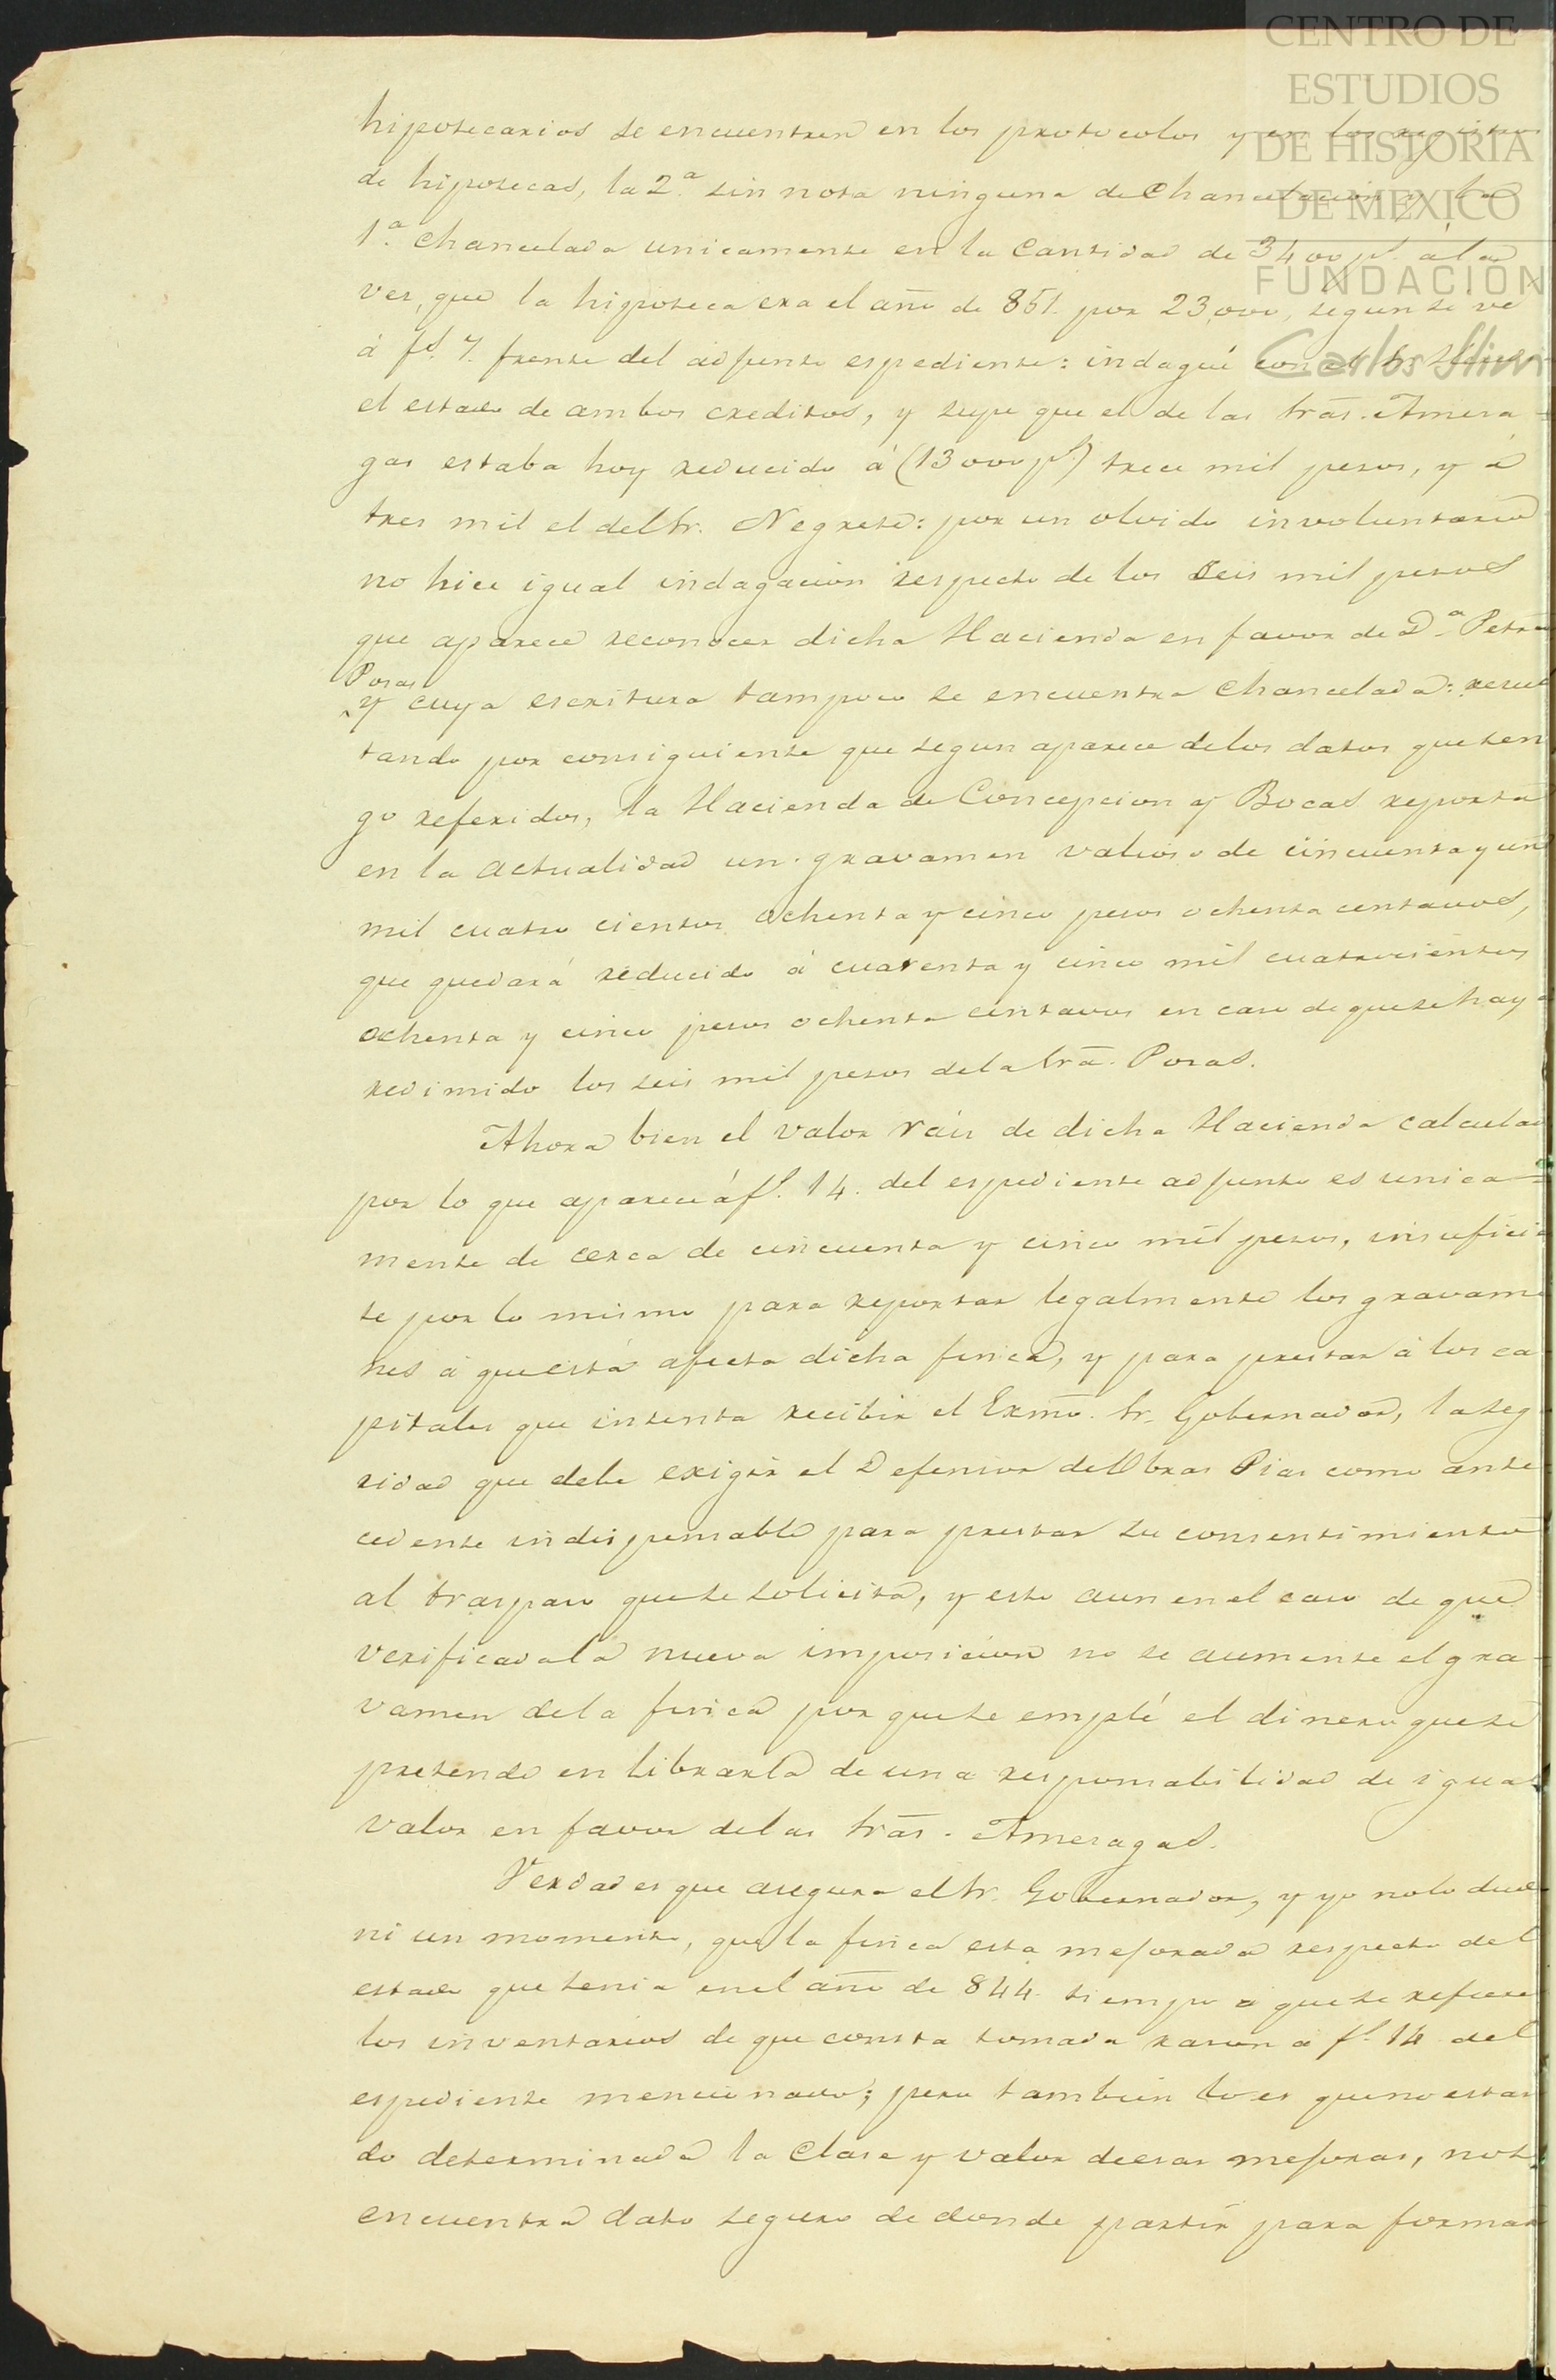 CENTRO DE
ESTUDIOS
DE HISTORIA
DE MEXICO
FUNDACIÓN
Carlos Slim
hipotecarios se encuentren en los protocolos y en los registros
de hipotecas, la 2.ª sin nota ninguna de Chancelacion y la
1.ª Chancelada unicamente en la Cantidad de 3400 p.s á la
vez, que la hipoteca era el año de 851. por 23,000, segun se vé
á fs. 7. frente del adjunto espediente: indagué con el Sr.
el estado de ambos creditos, y supe que el de las Srās. Amesa-
gas estaba hoy reducido á (13000 p.s) trece mil pesos, y á
tres mil el del Sr. Negrete: por un olvido involuntario
no hice igual indagacion respecto de los seis mil pesos
que aparece reconocer dicha Hacienda en favor de D.ª Petra
Posas
y cuya escritura tampoco se encuentra Chancelada: resul
tando por consiguiente que segun aparece de los datos que ten
go referidos, la Hacienda de Concepcion y Bocas reporta
en la actualidad un gravamen valioso de cincuenta y un
mil cuatro cientos ochenta y cinco pesos ochenta centavos,
que quedará reducido á cuarenta y cinco mil cuatrocientos
ochenta y cinco pesos ochenta centavos en caso de que se haya
redimido los seis mil pesos de la Srā. Posas.
Ahora bien el valor raiz de dicha Hacienda calculad
por lo que aparece á fs. 14. del espediente adjunto es unica-
mente de cerca de cincuenta y cinco mil pesos, insuficie
te por lo mismo para reportar legalmente los gravame
nes á que está afecta dicha finca, y para prestar á los ca
pitales que intenta recibir el Exmō. Sr. Gobernador, la seg
ridad que debe exigir el Defensor de Obras Pias como ante
cedente indispensable para prestar su consentimiento
al traspaso que se solicita, y esto aun en el caso de que
verificada la nueva imposicion no se aumente el gra-
vamen de la finca por que se emplé el dinero que se
pretende en librarla de una responsabilidad de igual
valor en favor de las Srās. Amesagas.
Verdad es que asegura el Sr. Gobernador, y yo no lo dudo
ni un momento, que la finca esta mejorada respecto del
estado que tenia en el año de 844. tiempo a que se refieren
los inventarios de que consta tomada razon á fs. 14 del
espediente mencionado; pero tambien lo es que no estan
do determinada la Clase y valor de esas mejoras, no se
encuentra dato seguro de donde partir para formar